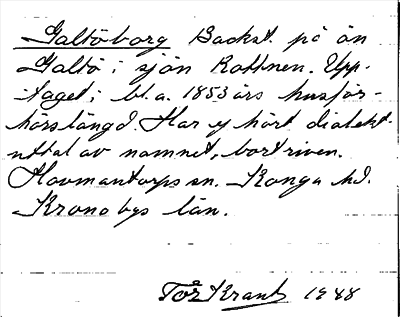 Galtöborg Backst. på ön
Galtö i sjön Rottnen. Upp-
taget i bl.a. 1853 års husför-
hörslängd. Har ej hört dialekt-
uttal av namnet, bortriven.
Hovmantorps sn. Konga hd.
Kronobgs län.
Tor Krantz 1948